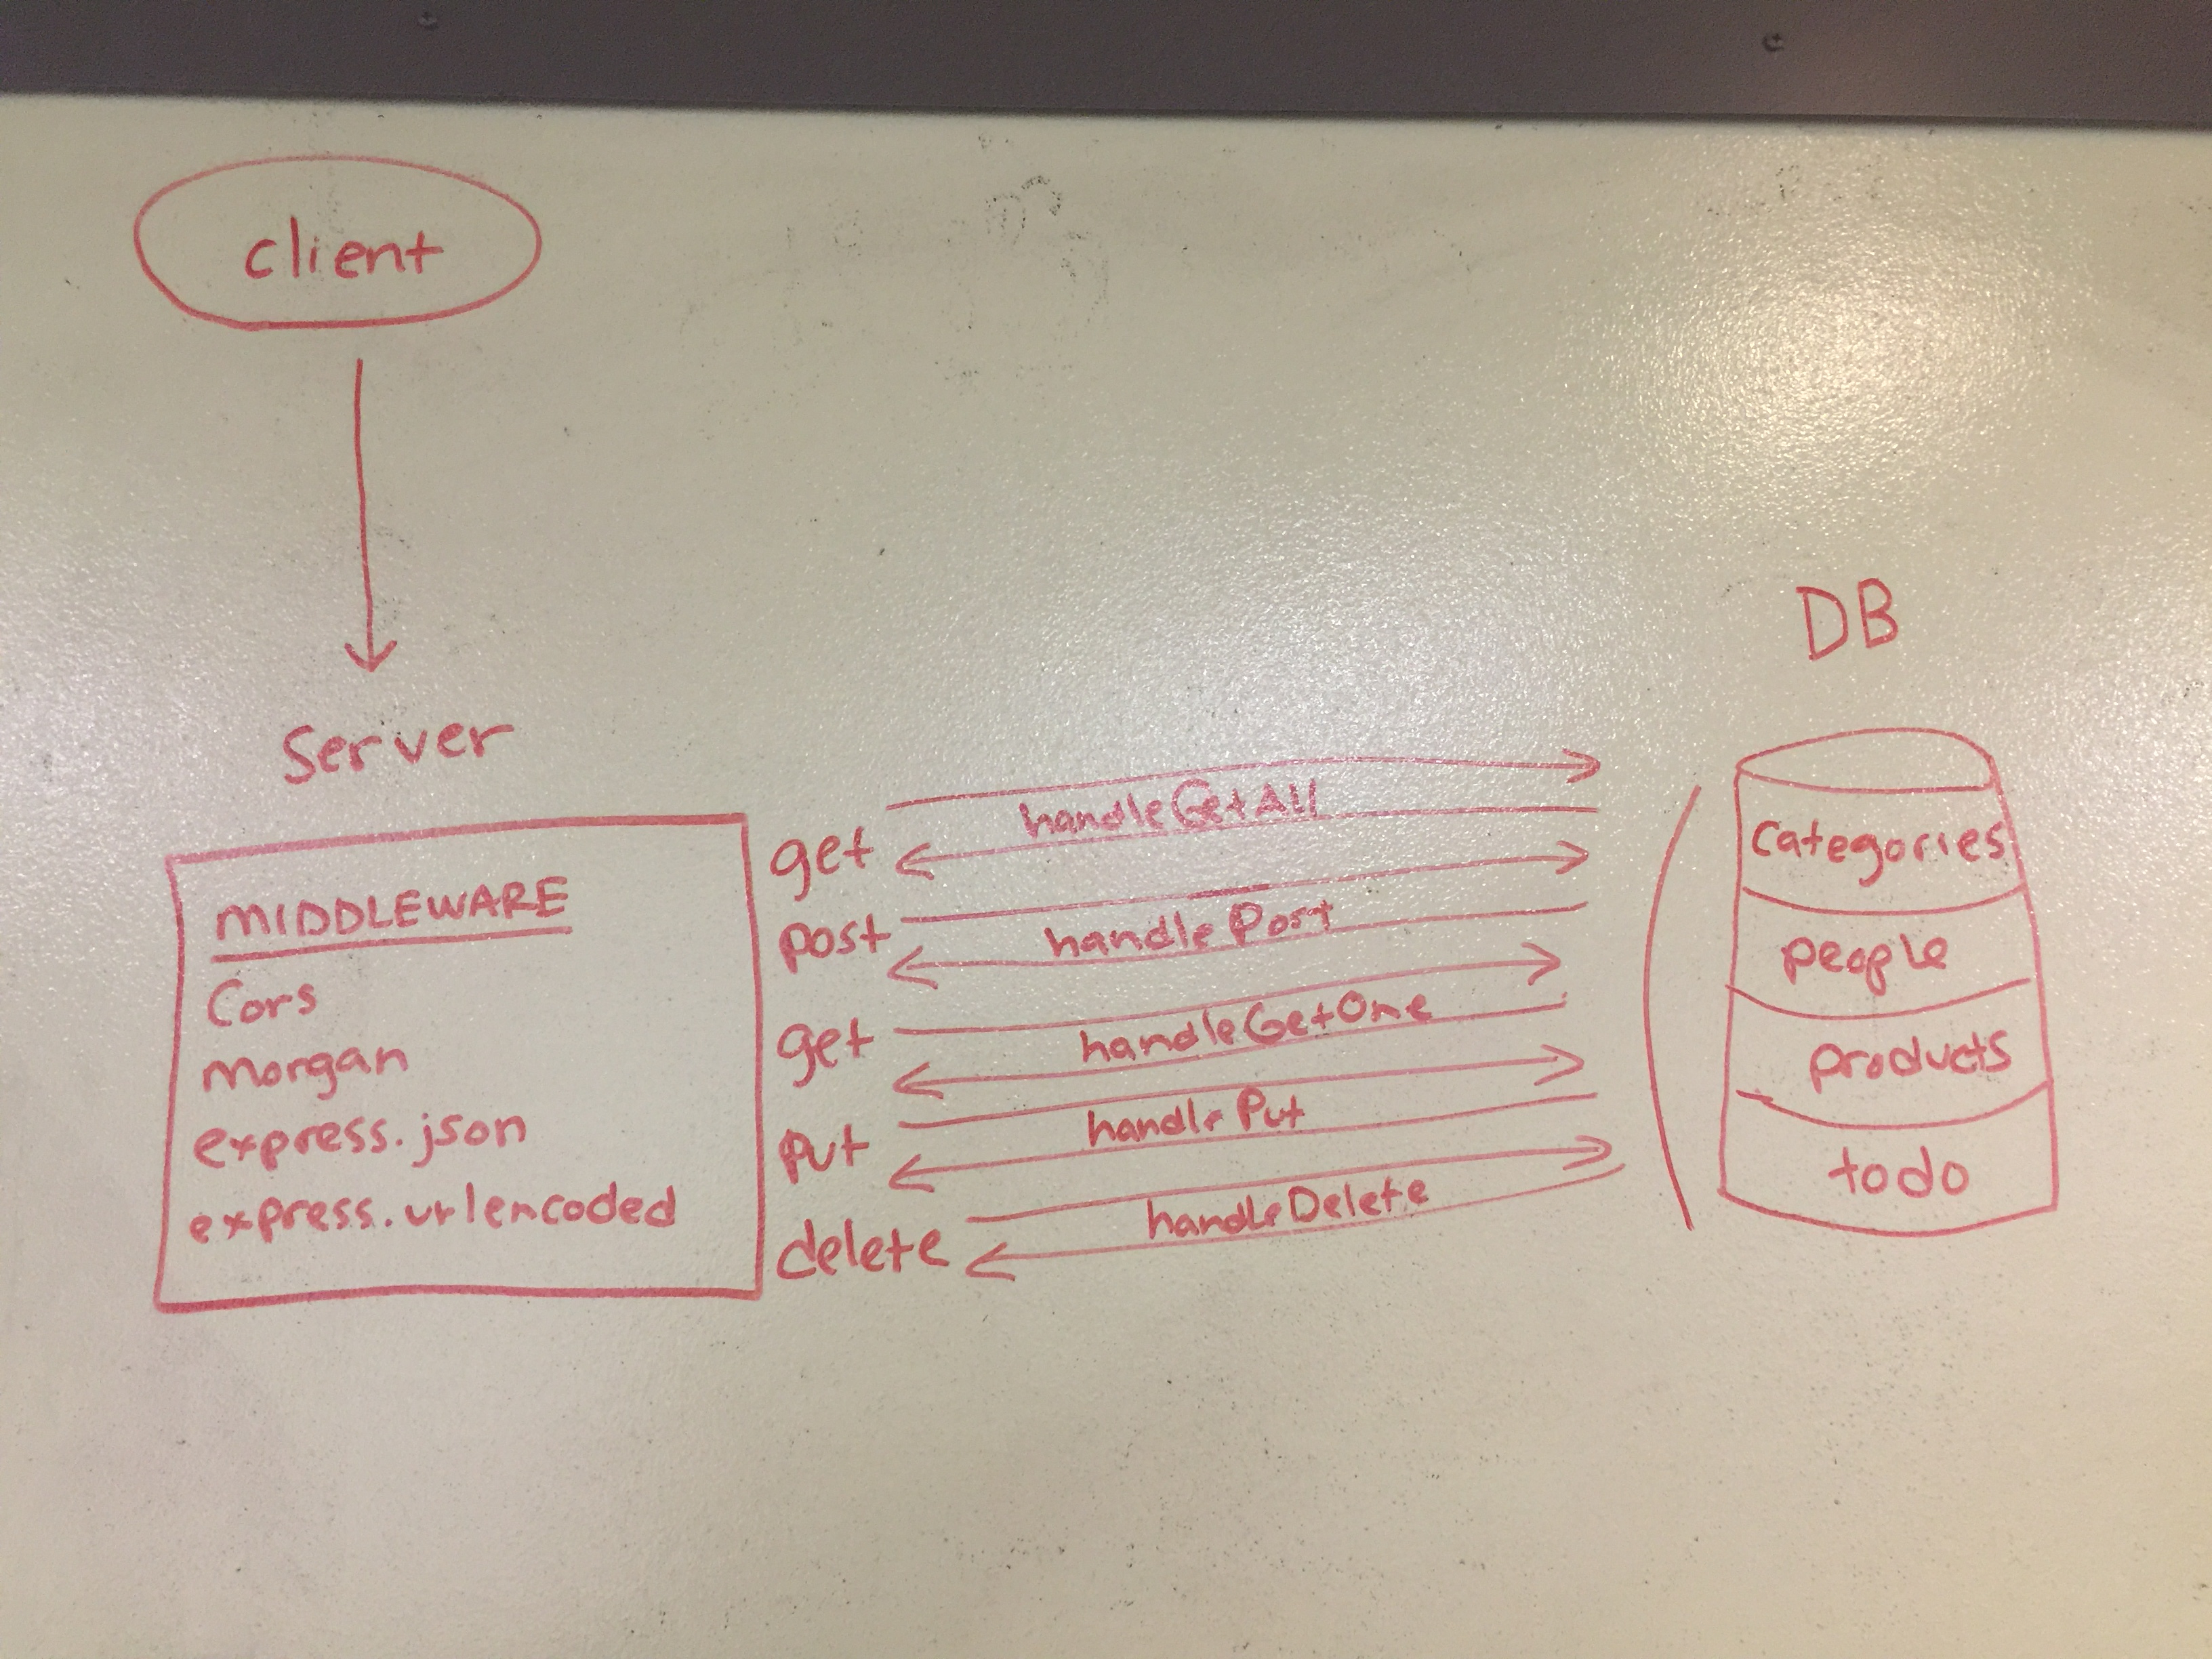 client
Server
MIDDLEWARE
Cors
morgan
express.json
express.urlencoded
get
handleGetAll
post
handlePost
get
handleGetOne
put
handlePut
delete
handleDelete
DB
categories
people
products
todo